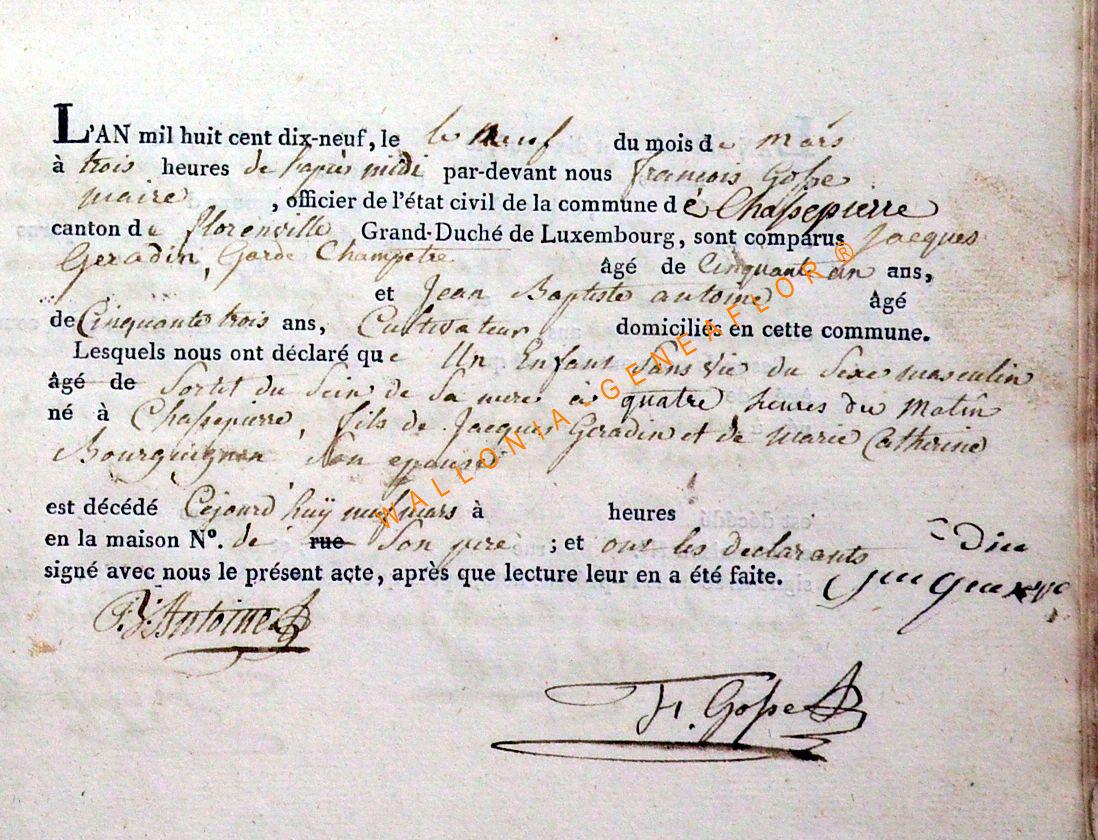 L'AN mil huit cent dix-neuf, le le neuf du mois de mars
à trois heures de l'après midi par-devant nous françois Gosse
maire , officier de l'état civil de la commune de Chassepierre
canton de florenville Grand-Duché de Luxembourg, sont comparus Jacques
Geradin, Garde Champetre âgé de Cinquant un ans,
et Jean Baptiste antoine âgé
de Cinquante trois ans, Cultivateur domiciliés en cette commune.
Lesquels nous ont déclaré que Un Enfant Sans Vie du Sexe masculin
âgé de Sortit du Sein de Sa mere à quatre heures du Matin
né à Chassepierre, fils de Jacques Geradin et de Marie Catherine
Bourguignon Son epouse
est décédé Cejourd'huÿ neuf mars à heures
en la maison N°. de rue Son pere ; et ont les declarants
signé avec nous le présent acte, après que lecture leur en a été faite.
J. Antoine
F. Gosse
WALLONIA-GENEAFLOR®